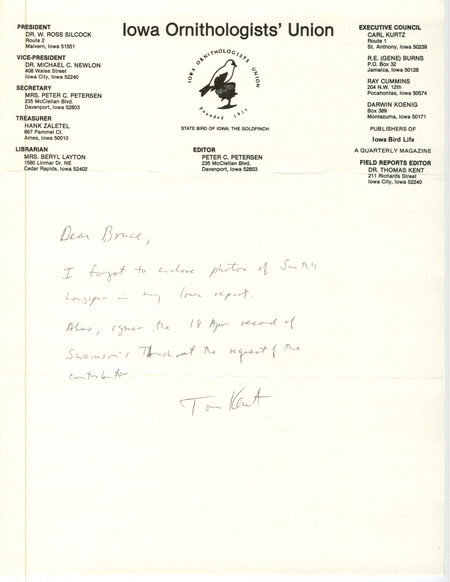 Iowa Ornithologists' Union
PRESIDENT
DR. W. ROSS SILCOCK
Route 2
Malvern, Iowa 51551
VICE-PRESIDENT
DR. MICHAEL C. NEWLON
408 Wales Street
Iowa City, Iowa 52240
SECRETARY
MRS. PETER C. PETERSEN
235 McClellan Blvd.
Davenport, Iowa 52803
TREASURER
HANK ZALETEL
667 Pammel Ct.
Ames, Iowa 50010
LIBRARIAN
MRS. BERYL LAYTON
1560 Linmar Dr. NE
Cedar Rapids, Iowa 52402
IOWA ORNITHOLOGISTS UNION
Founded 1923
STATE BIRD OF IOWA: THE GOLDFINCH
EDITOR
PETER C. PETERSEN
235 McClellan Blvd.
Davenport, Iowa 52803
EXECUTIVE COUNCIL
CARL KURTZ
Route 1
St. Anthony, Iowa 50239
R.E. (GENE) BURNS
P.O. Box 32
Jamaica, Iowa 50128
RAY CUMMINS
204 N.W. 12th
Pocahontas, Iowa 50574
DARWIN KOENIG
Box 389
Montezuma, Iowa 50171
PUBLISHERS OF
Iowa Bird Life
A QUARTERLY MAGAZINE
FIELD REPORTS EDITOR
DR. THOMAS KENT
211 Richards Street
Iowa City, Iowa 52240
Dear Bruce,
I forgot to enclose photos of Smith's
Longspur in my Iowa report.
Also, ignore the 18 Apr record of
Swainson's Thrush at the request of the
contributor
Tom Kent